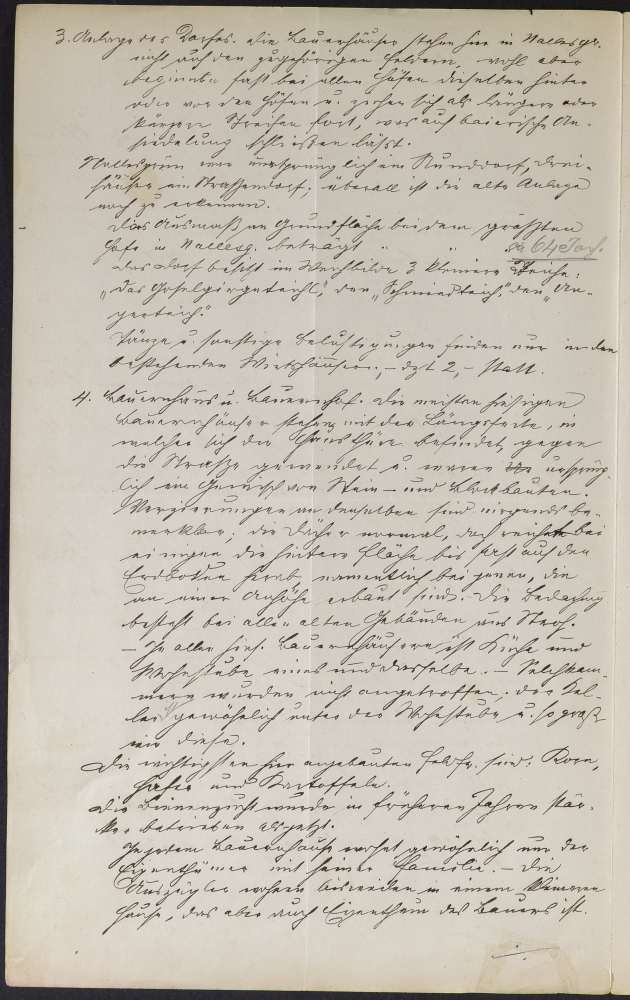 3. Anlage des Dorfes. Die Bauernhäuser stehen hier in Nallesgr.
nicht auf den zugehörigen Feldern, wohl aber
beginnen fast bei allen Höfen dieselben hinter
oder vor den Höfen u. ziehen sich als längere oder
kürzere Streifen fort, was auf baierische An-
siedelung schließen läßt.
Nallesgrün war ursprünglich ein Runddorf, Drei-
häuser ein Straßendorf; überall ist die alte Anlage
noch zu erkennen.
Das Ausmaß an Grundfläche bei dem größten
Hofe in Nallesg. beträgt " " ca 64 Joch.
Das Dorf besitzt im Weichbilde 3 kleinere Teiche:
„Das teichl“, den „Schmiedteich“, den „An-
gerteich“.
Tänze u. sonstige Belustigungen finden nur in den
bestehenden Wirtshäusern, – dzt 2, – statt.
4. Bauernhaus u. Bauernhof. Die meisten hiesigen
Bauernhäuser stehen mit der Längsseite, in
welcher sich die Hausthüre befindet, gegen
die Straße gewendet u. waren ursprüng-
lich ein Gemisch von Stein- und Blockbauten.
Verzierungen an denselben sind nirgends be-
merkbar; die Dächer normal, doch reichen bei
einigen die hintere Fläche bis fast auf den
Erdboden herab, namentlich bei jenen, die
an einer Anhöhe erbaut sind. Die Bedachung
besteht bei allen alten Gebäuden aus Stroh.
– In allen hies. Bauernhäusern ist Küche und
Wohnstube eines und dasselbe. – Selchkam-
mern wurden nicht angetroffen; der Kel-
ler gewöhnlich unter der Wohnstube u. so groß
wie diese.
Die wichtigsten hier angebauten Feldfr. sind: Korn,
Hafer und Kartoffeln.
Die Bienenzucht wurde in früheren Jahren stär-
ker betrieben als jetzt.
In jedem Bauernhause wohnt gewöhnlich nur der
Eigenthümer mit seiner Familie. – Die
Auszügler wohnen bisweilen in einem kleineren
Hause, das aber auch Eigenthum des Bauers ist.